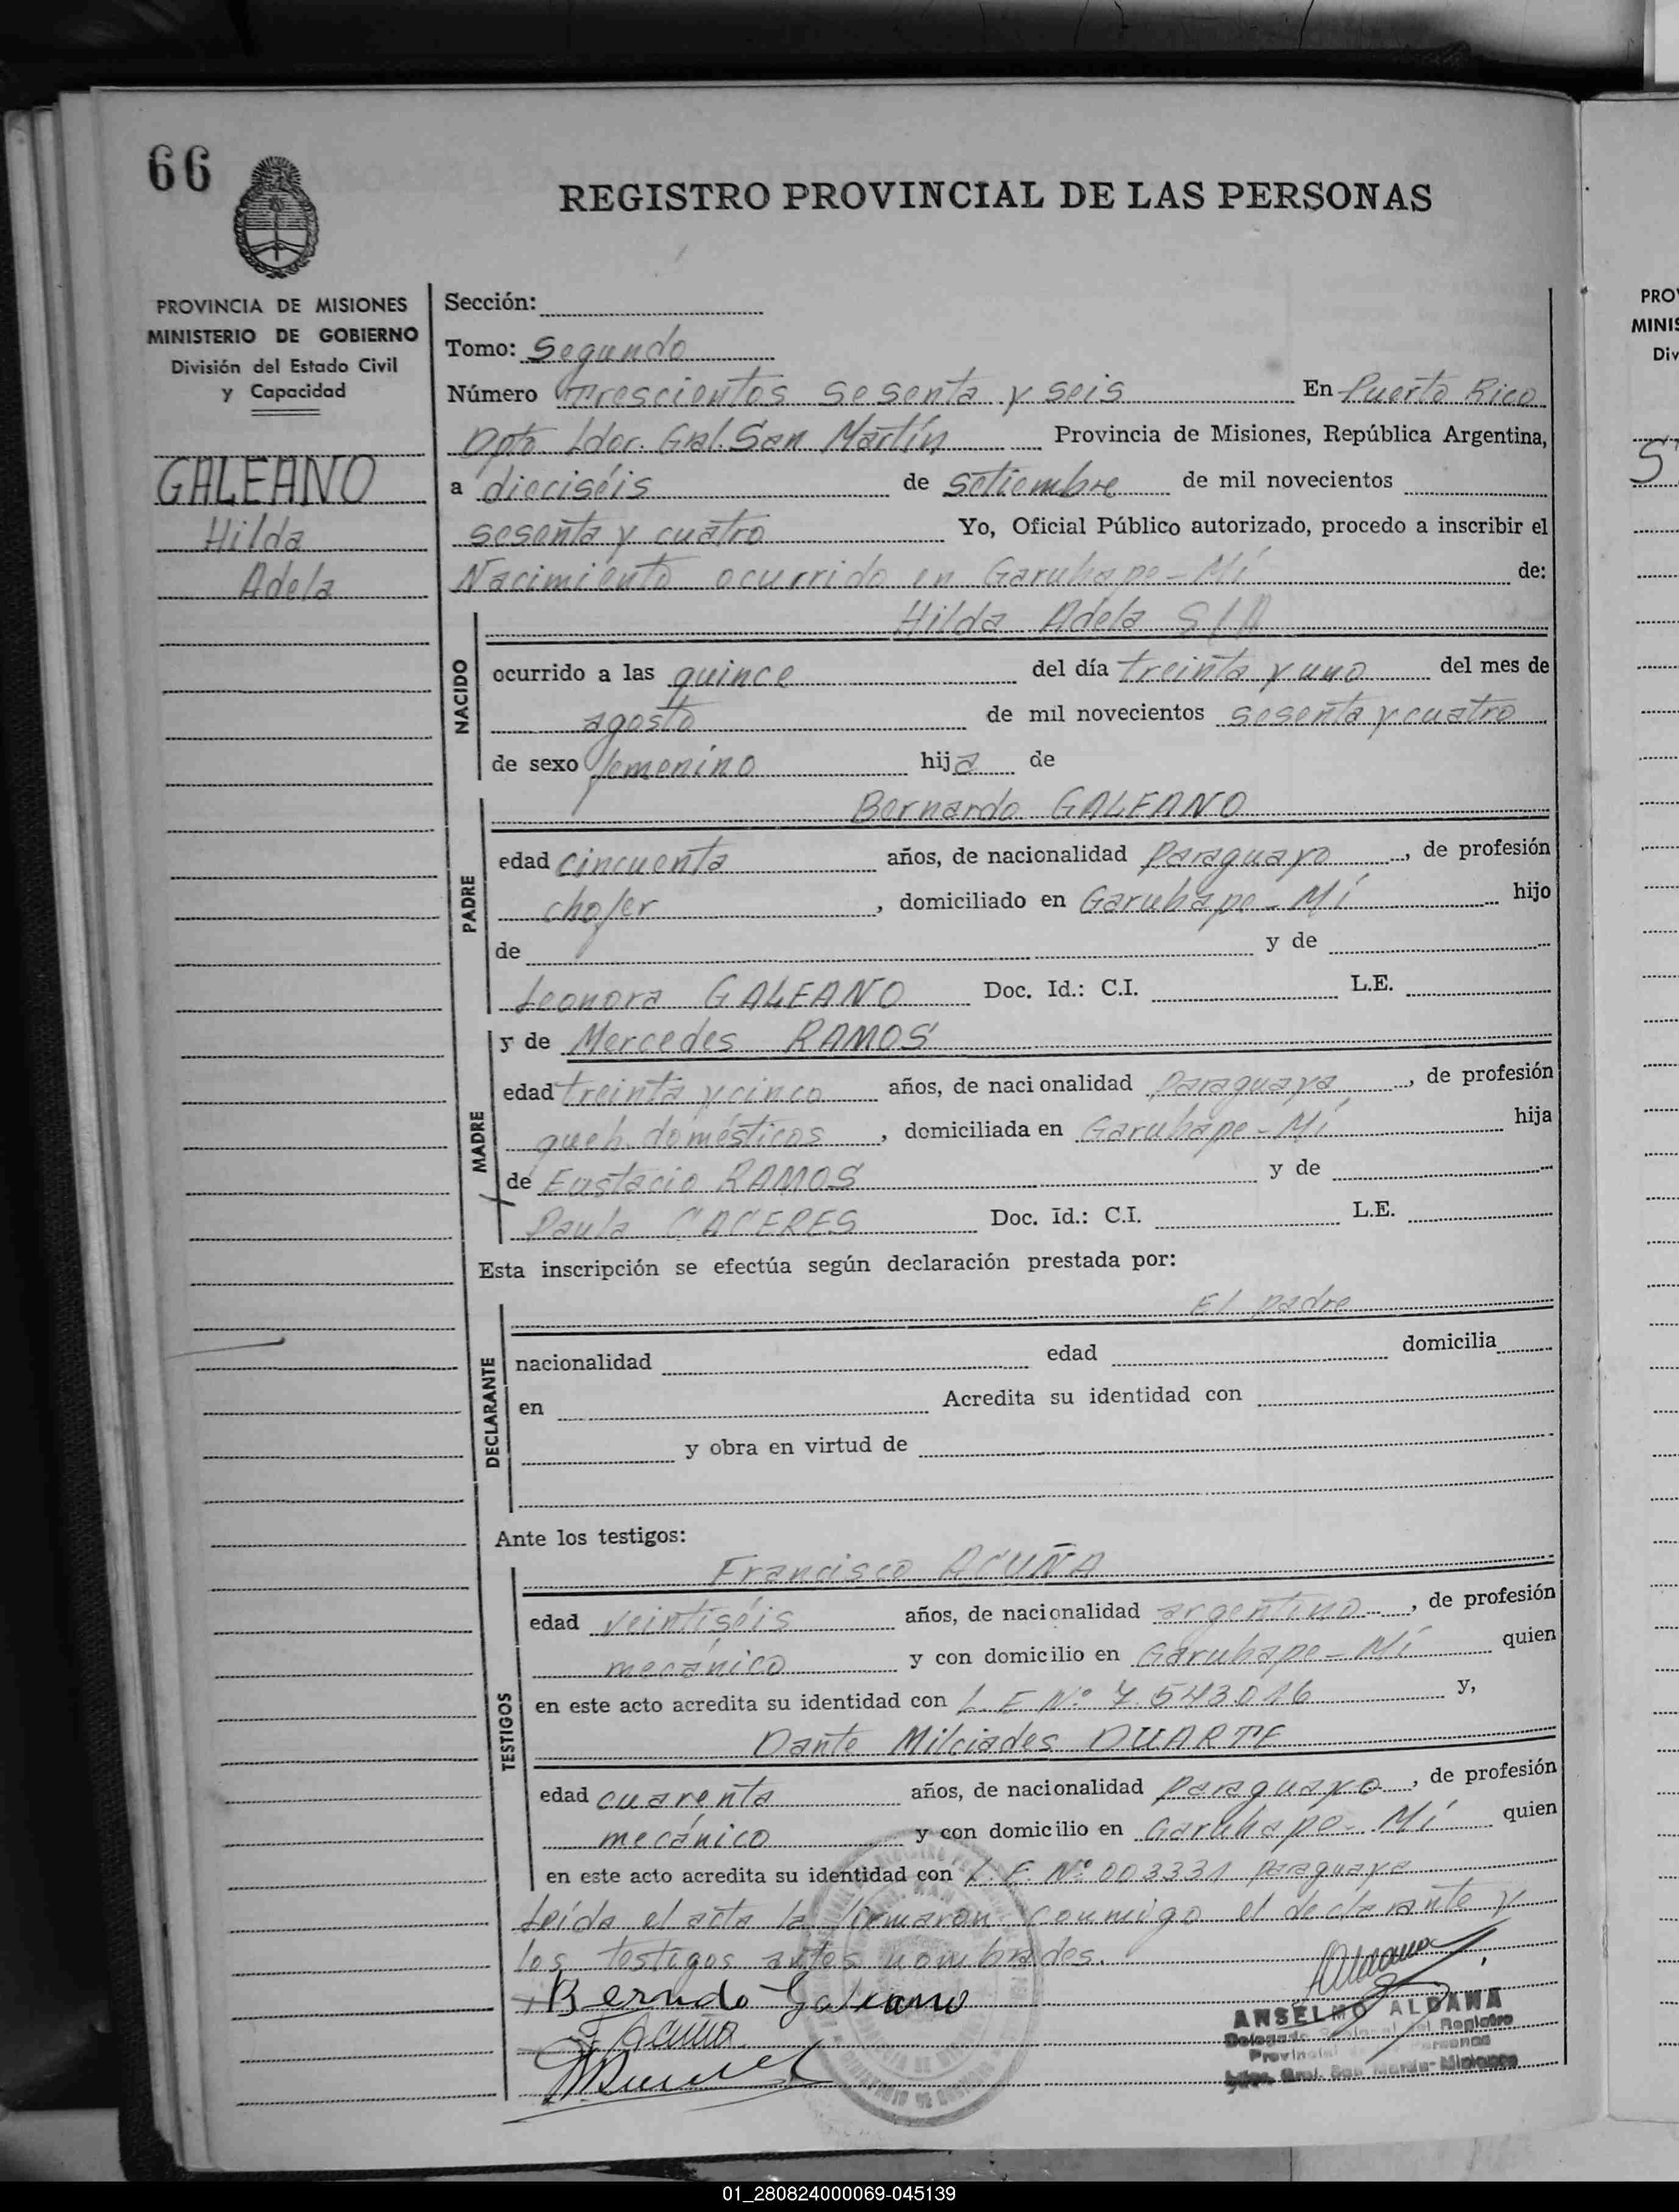 66
REGISTRO PROVINCIAL DE LAS PERSONAS
PROVINCIA DE MISIONES
MINISTERIO DE GOBIERNO
División del Estado Civil
y Capacidad
GALEANO
Hilda
Adela
Sección:
Tomo: Segundo
Número Trescientos sesenta y seis En Puerto Rico
Dpto. Ldor. Gral. San Martín Provincia de Misiones, República Argentina,
a dieciséis de setiembre de mil novecientos
sesenta y cuatro Yo, Oficial Público autorizado, procedo a inscribir el
Nacimiento ocurrido en Garuhape-Mí de:
NACIDO
Hilda Adela
ocurrido a las quince del día treinta y uno del mes de
agosto de mil novecientos sesenta y cuatro
de sexo femenino hija de
PADRE
Bernardo GALEANO
edad cincuenta años, de nacionalidad paraguayo, de profesión
chofer, domiciliado en Garuhape-Mí hijo
de y de
Leonora GALEANO Doc. Id.: C.I. L.E.
MADRE
y de Mercedes RAMOS
edad treinta y cinco años, de nacionalidad paraguaya, de profesión
queh. domésticos, domiciliada en Garuhape-Mí hija
de Eustacio RAMOS y de
Paula CACERES Doc. Id.: C.I. L.E.
Esta inscripción se efectúa según declaración prestada por:
DECLARANTE
El padre
nacionalidad edad domicilia
en Acredita su identidad con
y obra en virtud de
Ante los testigos:
TESTIGOS
Francisco ACUÑA
edad veintiséis años, de nacionalidad argentino, de profesión
mecánico y con domicilio en Garuhape-Mí quien
en este acto acredita su identidad con L.E Nº 7.543.016 y,
Dante Milciades DUARTE
edad cuarenta años, de nacionalidad paraguayo, de profesión
mecánico y con domicilio en Garuhape-Mí quien
en este acto acredita su identidad con L.E. Nº 003331 paraguaya
Leída el acta la firmaron conmigo el declarante y
los testigos antes nombrados.
Bernado Galeano
F Acuña
ANSELMO ALDANA
Delegado del Registro
Provincial Personas
Ldor. Gral. San Martín-Misiones
PRO
MINIS
Div
01_280824000069-045139